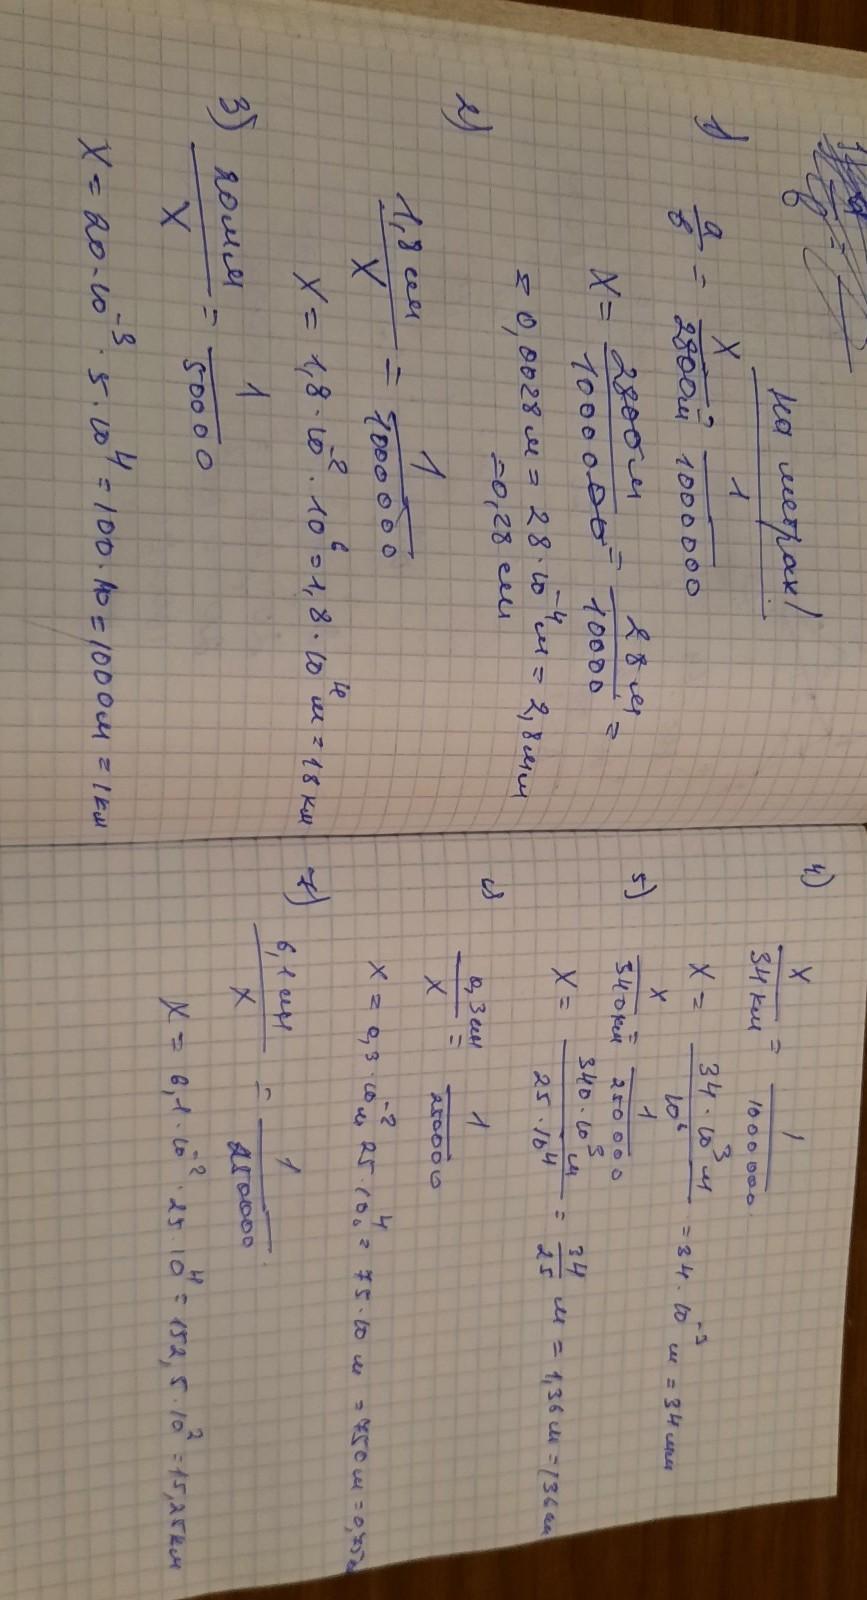 на метрах!
1) a/b = x/2800м = 1/1000000
x = 2800м/1000000 = 28м/10000 =
= 0,0028 м = 28·10⁻⁴ м = 2,8 мм
= 0,28 см
2) 1,8 см/x = 1/1000000
x = 1,8·10⁻²·10⁶ = 1,8·10⁴ м = 18 км
3) 20 мм/x = 1/50000
x = 20·10⁻³·5·10⁴ = 100·10 = 1000 м = 1 км
4) x/34 км = 1/1000000
x = 34·10³ м/10⁶ = 34·10⁻³ м = 34 мм
5) x/340 км = 1/250000
x = 340·10³ м/25·10⁴ = 34/25 м = 1,36 м = 136 см
6) 0,3 см/x = 1/250000
x = 0,3·10⁻² м 25·10⁴ = 75·10 м = 750 м = 0,75
7) 6,1 см/x = 1/250000
x = 6,1·10⁻²·25·10⁴ = 152,5·10² = 15,25 км